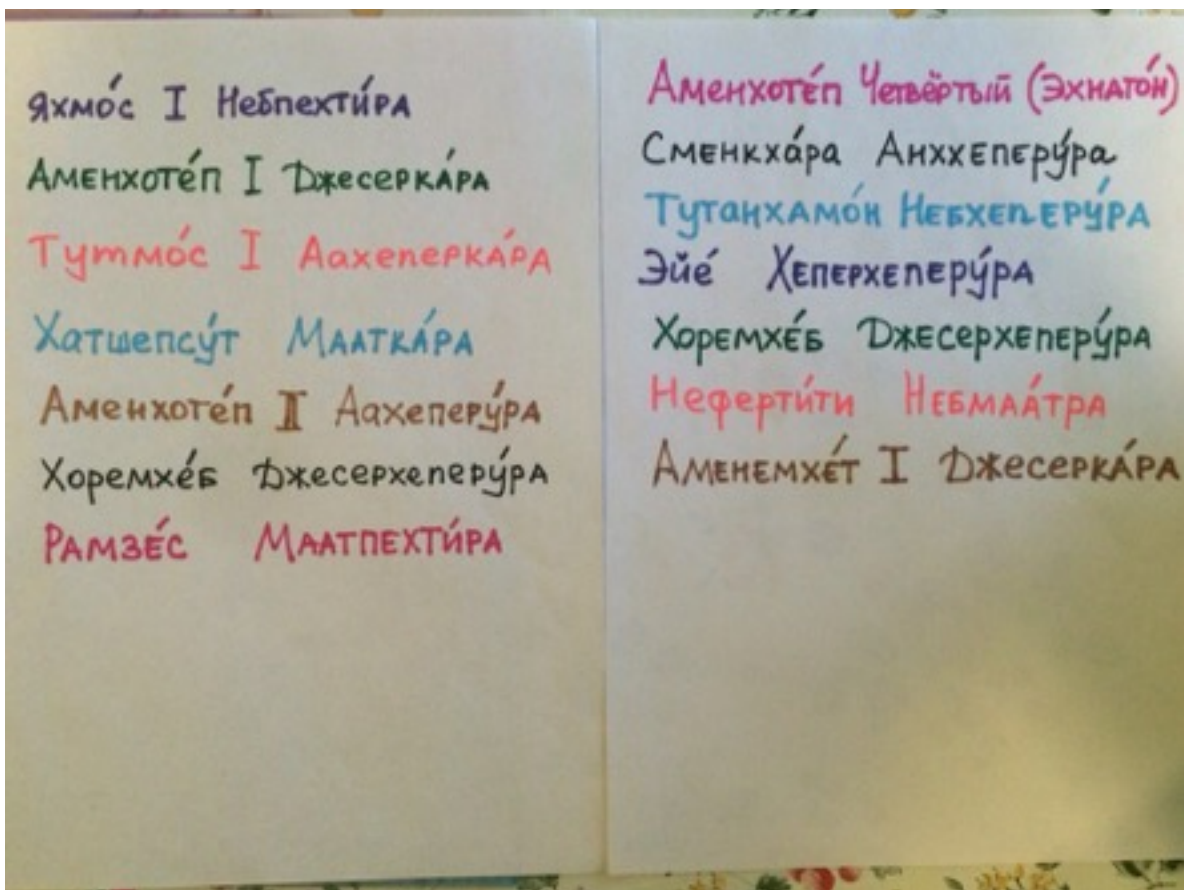 Яхмо́с I Небпехти́ра
Аменхоте́п I Джесерка́ра
Тутмо́с I Аахеперка́ра
Хатшепсу́т Маатка́ра
Аменхоте́п II Аахеперу́ра
Хоремхе́б Джесерхеперу́ра
Рамзе́с Маатпехти́ра
Аменхоте́п Четвёртый (Эхнато́н)
Сменкха́ра Анххеперу́ра
Тутанхамо́н Небхеперу́ра
Эйе́ Хеперхеперу́ра
Хоремхе́б Джесерхеперу́ра
Неферти́ти Небмаа́тра
Аменемхе́т I Джесерка́ра